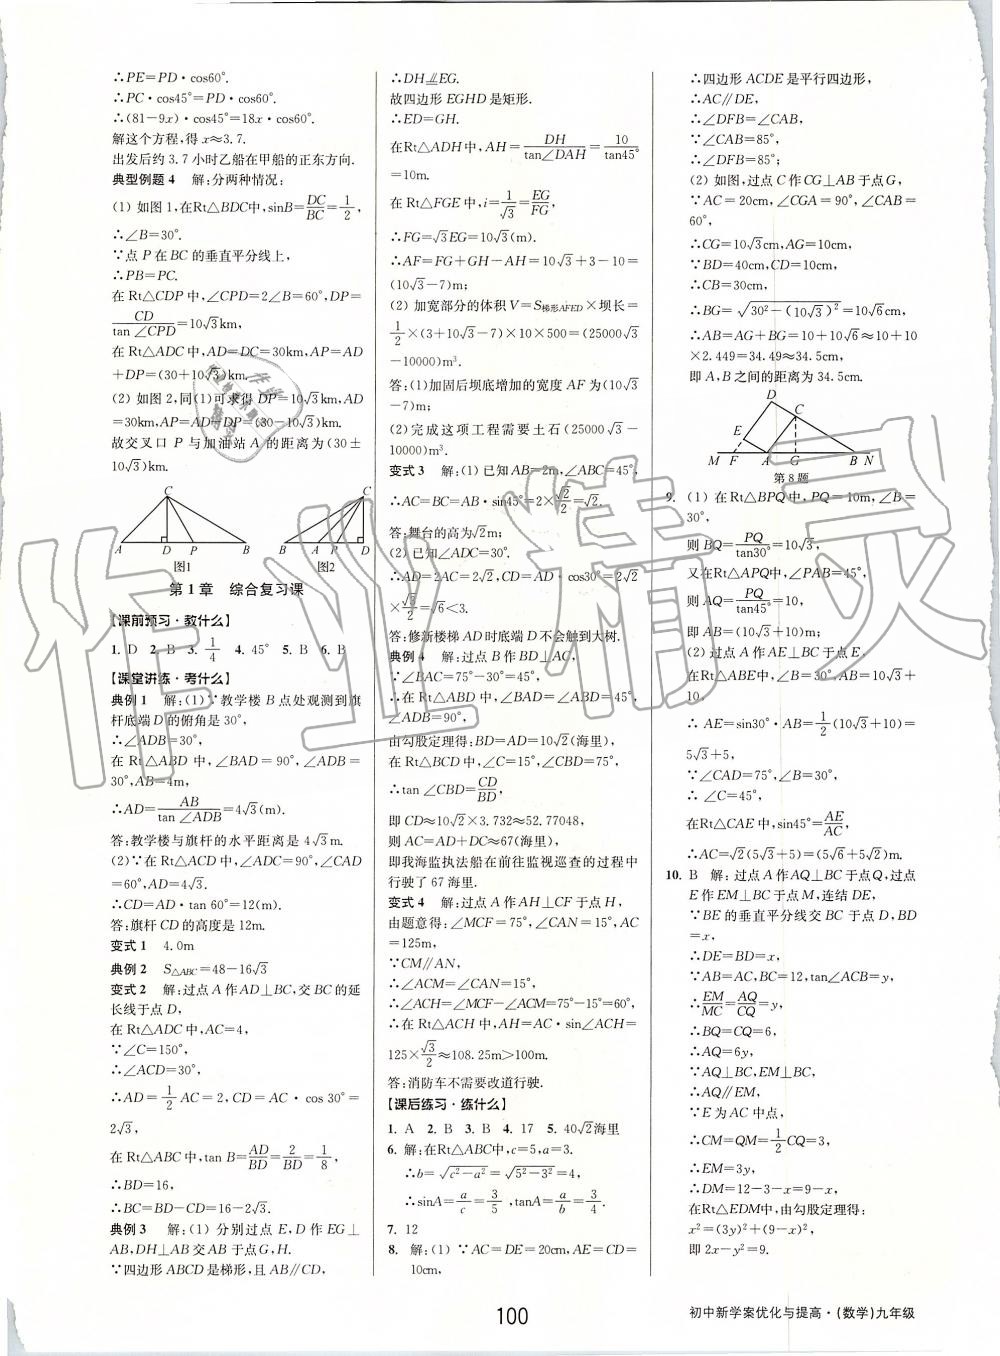 ∴PE=PD·cos60°.
∴PC·cos45°=PD·cos60°.
∴(81-9x)·cos45°=18x·cos60°.
解这个方程,得 x≈3.7.
出发后约 3.7 小时乙船在甲船的正东方向.
典型例题 4 解:分两种情况:
(1) 如图 1,在Rt△BDC中,sinB=DC/BC=1/2,
∴∠B=30°.
∵点 P 在 BC 的垂直平分线上,
∴PB=PC.
在 Rt△CDP 中,∠CPD=2∠B=60°,DP=
CD/tan∠CPD=10√3km,
在 Rt△ADC 中,AD=DC=30km,AP=AD
+DP=(30+10√3)km.
(2) 如图 2,同(1)可求得 DP=10√3km,AD
=30km,AP=AD-DP=(30-10√3)km.
故交叉口 P 与加油站 A 的距离为 (30±
10√3)km.
C
A D P B
图1
C
B A P D
图2
第 1 章 综合复习课
【课前预习·教什么】
1. D 2. B 3. 1/4 4. 45° 5. B 6. B
【课堂讲练·考什么】
典例 1 解:(1)∵教学楼 B 点处观测到旗
杆底端 D 的俯角是 30°,
∴∠ADB=30°,
在 Rt△ABD 中,∠BAD=90°,∠ADB=
30°,AB=4m,
∴AD=AB/tan∠ADB=4√3(m).
答:教学楼与旗杆的水平距离是 4√3m.
(2)∵在 Rt△ACD 中,∠ADC=90°,∠CAD
=60°,AD=4√3,
∴CD=AD·tan 60°=12(m).
答:旗杆 CD 的高度是 12m.
变式 1 4.0m
典例 2 S△ABC=48-16√3
变式 2 解:过点 A 作 AD⊥BC,交 BC 的延
长线于点 D,
在 Rt△ADC 中,AC=4,
∵∠C=150°,
∴∠ACD=30°,
∴AD=1/2AC=2,CD=AC·cos 30°=
2√3,
在 Rt△ABC 中,tan B=AD/BD=2/BD=1/8,
∴BD=16,
∴BC=BD-CD=16-2√3.
典例 3 解:(1) 分别过点 E,D 作 EG⊥
AB,DH⊥AB 交 AB 于点 G,H.
∵四边形 ABCD 是梯形,且 AB∥CD,
∴DH⫽EG.
故四边形 EGHD 是矩形.
∴ED=GH.
在Rt△ADH 中,AH=DH/tan∠DAH=10/tan45°
=10m.
在 Rt△FGE 中,i=1/√3=EG/FG,
∴FG=√3EG=10√3(m).
∴AF=FG+GH-AH=10√3+3-10=
(10√3-7)m;
(2) 加宽部分的体积 V=S梯形AFED×坝长=
1/2×(3+10√3-7)×10×500=(25000√3
-10000)m³.
答:(1)加固后坝底增加的宽度 AF 为(10√3
-7)m;
(2)完成这项工程需要土石(25000√3-
10000)m³.
变式 3 解:(1) 已知 AB=2m,∠ABC=45°,
∴AC=BC=AB·sin45°=2×√2/2=√2.
答:舞台的高为√2m;
(2) 已知∠ADC=30°.
∴AD=2AC=2√2,CD=AD·cos30°=2√2
×√3/2=√6<3.
答:修新楼梯 AD 时底端 D 不会触到大树.
典例 4 解:过点 B 作 BD⊥AC,
∵∠BAC=75°-30°=45°,
∴在 Rt△ABD 中,∠BAD=∠ABD=45°,
∠ADB=90°,
由勾股定理得:BD=AD=10√2(海里),
在 Rt△BCD 中,∠C=15°,∠CBD=75°,
∴tan∠CBD=CD/BD,
即 CD≈10√2×3.732≈52.77048,
则 AC=AD+DC≈67(海里),
即我海监执法船在前往监视巡查的过程中
行驶了 67 海里.
变式 4 解:过点 A 作 AH⊥CF 于点 H,
由题意得:∠MCF=75°,∠CAN=15°,AC
=125m,
∵CM∥AN,
∴∠ACM=∠CAN=15°,
∴∠ACH=∠MCF-∠ACM=75°-15°=60°,
∴在 Rt△ACH 中,AH=AC·sin∠ACH=
125×√3/2≈108.25m>100m.
答:消防车不需要改道行驶.
【课后练习·练什么】
1. A 2. B 3. B 4. 17 5. 40√2海里
6. 解:在Rt△ABC中,c=5,a=3.
∴b=√(c²-a²)=√(5²-3²)=4,
∴sinA=a/c=3/5,tanA=a/b=3/4.
7. 12
8. 解:(1) ∵AC=DE=20cm,AE=CD=
10cm,
∴四边形 ACDE 是平行四边形,
∴AC∥DE,
∴∠DFB=∠CAB,
∵∠CAB=85°,
∴∠DFB=85°;
(2) 如图,过点 C 作 CG⊥AB 于点 G,
∵AC=20cm,∠CGA=90°,∠CAB=
60°,
∴CG=10√3cm,AG=10cm,
∵BD=40cm,CD=10cm,
∴CB=30cm,
∴BG=√(30²-(10√3)²)=10√6cm,
∴AB=AG+BG=10+10√6≈10+10
×2.449=34.49≈34.5cm,
即 A,B 之间的距离为 34.5cm.
D
C
E
M F A G B N
第 8 题
9. (1) 在 Rt△BPQ 中,PQ=10m,∠B=
30°,
则 BQ=PQ/tan30°=10√3,
又在Rt△APQ中,∠PAB=45°,
则 AQ=PQ/tan45°=10,
即 AB=(10√3+10)m;
(2) 过点 A 作 AE⊥BC 于点 E,
在 Rt△ABE中,∠B=30°,AB=10√3+
10,
∴ AE=sin30°·AB=1/2(10√3+10)=
5√3+5,
∵∠CAD=75°,∠B=30°,
∴ ∠C=45°,
在Rt△CAE 中,sin45°=AE/AC,
∴AC=√2(5√3+5)=(5√6+5√2)m.
10. B 解:过点 A 作AQ⊥BC 于点 Q,过点
E 作 EM⊥BC 于点 M,连结 DE,
∵BE 的垂直平分线交 BC 于点 D,BD
=x,
∴DE=BD=x,
∵AB=AC,BC=12,tan∠ACB=y,
∴EM/MC=AQ/CQ=y,
∴BQ=CQ=6,
∴AQ=6y,
∵AQ⊥BC,EM⊥BC,
∴AQ∥EM,
∵E 为 AC 中点,
∴CM=QM=1/2CQ=3,
∴EM=3y,
∴DM=12-3-x=9-x,
在Rt△EDM中,由勾股定理得:
x²=(3y)²+(9-x)²,
即 2x-y²=9.
100
初中新学案优化与提高·(数学)九年级
作业精灵